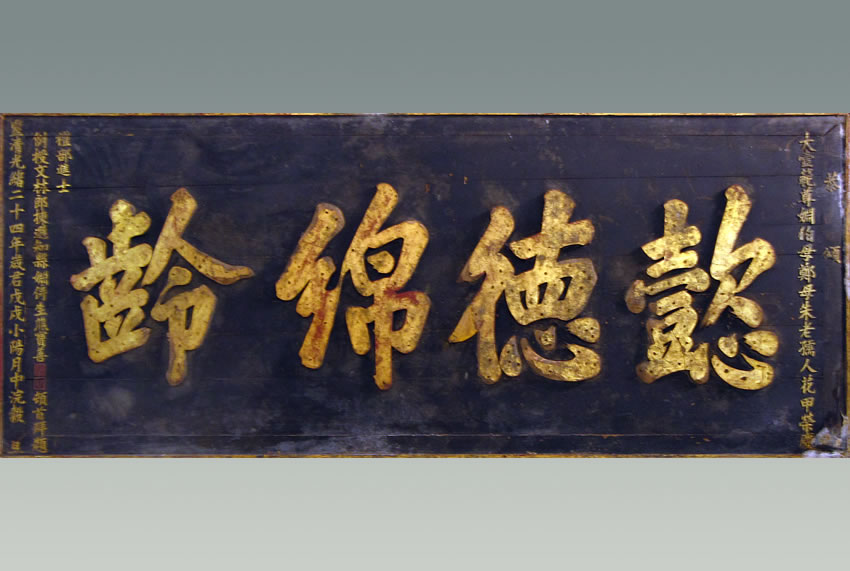 恭頌
大壼範尊姻伯母鄭母朱老孺人花甲榮慶
懿德綿齡
禮部進士
例授文林郎揀選知縣姻侍生熊賓善頓首拜題
皇清光緒二十四年歲在戊戌小陽月中浣穀旦